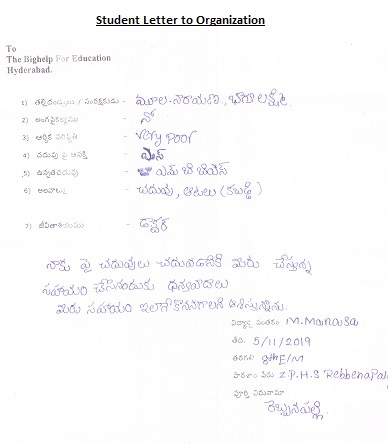 Student Letter to Organization
To
The Bighelp For Education
Hyderabad.
1) తల్లిదండ్రులు / సంరక్షకుడు - మూల. నారాయణ, భాగ్యలక్ష్మి.
2) అంగవైకల్యము - నో
3) ఆర్థిక పరిస్థితి - very poor
4) చదువు పై ఆసక్తి - ఎస్
5) ఉన్నతచదువు - ఎమ్ బి బియెస్
6) అలవాట్లు - చదువు, ఆటలు (కబడ్డి)
7) జీవితాశయము - డాక్టర్
నాకు పై చదువులు చదువడానికి మీరు చేస్తున్న
సహాయం చేసినందుకు ధన్యవాదాలు
మీరు సహాయం ఇలాగే కొనసాగాలని ఆశిస్తున్నాను.
విద్యార్థి సంతకం M.Manasa.
తేది. 5/11/2019
తరగతి 8th E/M
పాఠశాల పేరు Z.P.H.S Rebbenapal
పూర్తి చిరునామా
రెబ్బనపల్లి.